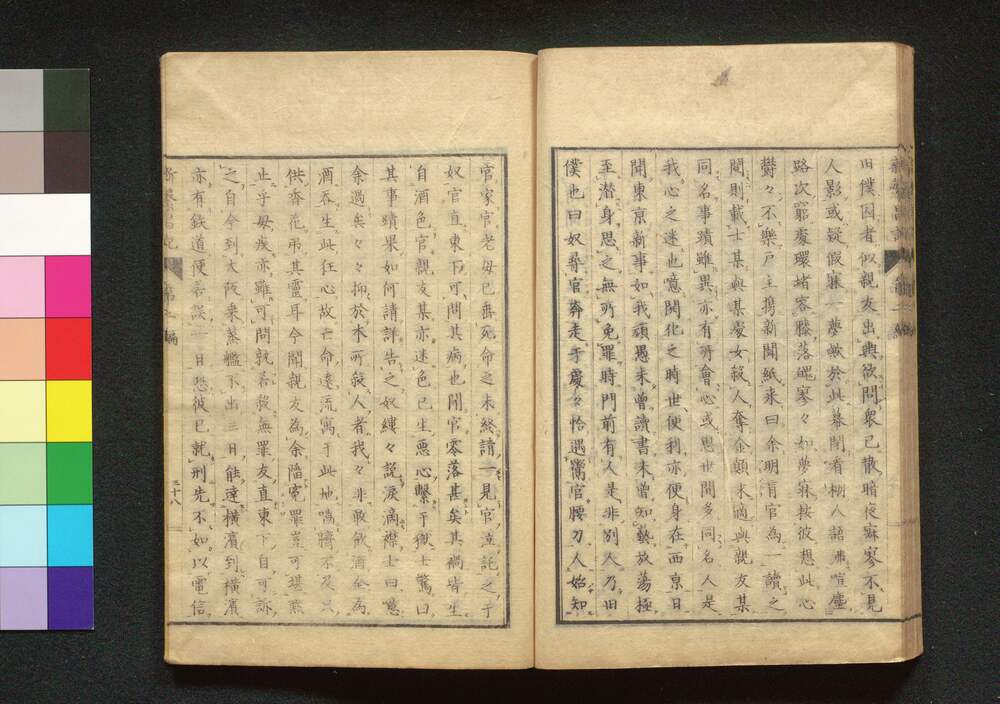 旧僕因者似親友出與欲問衆已散暗夜寐寥不見
人影或疑假寐一夢歟於此幕開看棚人語沸喧塵
路次窮処環堵容膝落魄寥々如夢寐按彼想此心
欝々不樂戸主携新聞紙来曰余明盲官為一讀之
聞則載士某與某妾女殺人奪金顛末適與親友某
同名事蹟雖異亦有所會心或思世間多同名人是
我心之迷也噫開化之時世便利亦便身在西京日
聞東京新事如我頑愚未曽讀書未曽知藝放蕩極
至潜身思之無所免罪時門前有人是非別人乃旧
僕也曰奴尋官奔走于處々恰遇鬻官腰刀人始知
官家官老母已垂死命之未終請一見官違託之于
奴官直東下可問其病也聞官零落甚矣其禍皆生
自酒色官親友某亦迷色已生悪心繫于獄士驚曰
其事蹟果如何請詳告之奴縷々説涙滴襟士曰噫
余過矣々々抑於木所殺人者我々非敢飲酒全為
酒呑生此狂心故亡命遠流寓于此地噛臍不及只
供香花弔其霊耳今聞親友為余陥寃罪豈可堪黙
止乎母疾亦難可問就若殺無罪友直東下自可訴
之自今到大阪乗蒸艦不出三日能達横濱到横濱
亦有鉄道便若誤一日恐彼已就刑先不如以電信
三十八